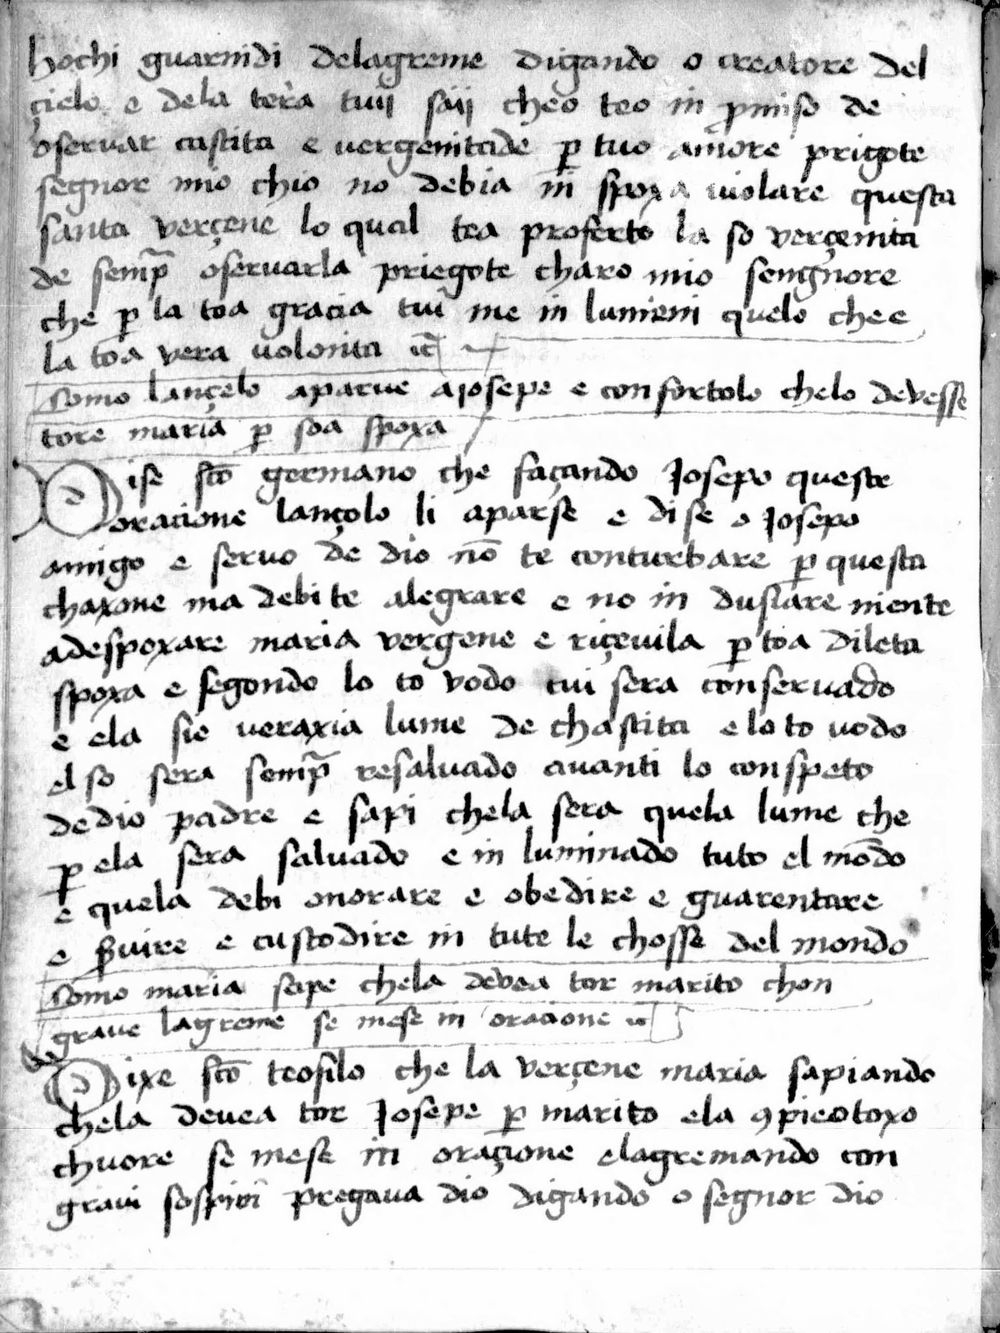 hochi guarnidi delagreme digando o creatore del
çielo e dela tera tuij saij cheo teo in p̱miso de
oservar castita e vergenitade ꝑ tuo amore prigote
segnor mio chio no debia in spoxa violare questa
santa verçene lo qual tea proferto la so verçenita
de semp̄ oservarla priegote charo mio sengnore
che ꝑ la toa gracia tui me in lumieni quelo chee
la toa vera volonta
Como lançelo aparue aiosepe e confortolo chelo devesse
tore maria ꝑ soa spoxa
Dise sc̄o germano che façando Josepo queste
oracione lançolo li aparse e dise o Josepo
amigo e servo de dio nō te conturbare ꝑ questa
chaxone ma debite alegrare e no in dusiare niente
adespoxare maria vergene e riçevila ꝑ toa dileta
spoxa e segondo lo to vodo tui sera conservado
e ela sie veraxia lume de chastita e lo to vodo
el so sera semp̄ resalvado avanti lo conspeto
dedio padre e sapi chela sera quela lume che
ꝑ ela sera salvado e in luminado tuto el mōdo
e quela debi onorare e obedire e guarentare
e ꝓvire e custodire in tute le chosse del mondo
Como maria sape chela devea tor marito chon
grave lagreme se mese in oracione
Dixe sc̄o teofilo che la verçene maria sapiando
chela devea tor Josepe ꝑ marito ela ꝯpieotoxo
chuore se mese in oraçione elagremando con
gravi sospiri pregava dio digando o segnor dio